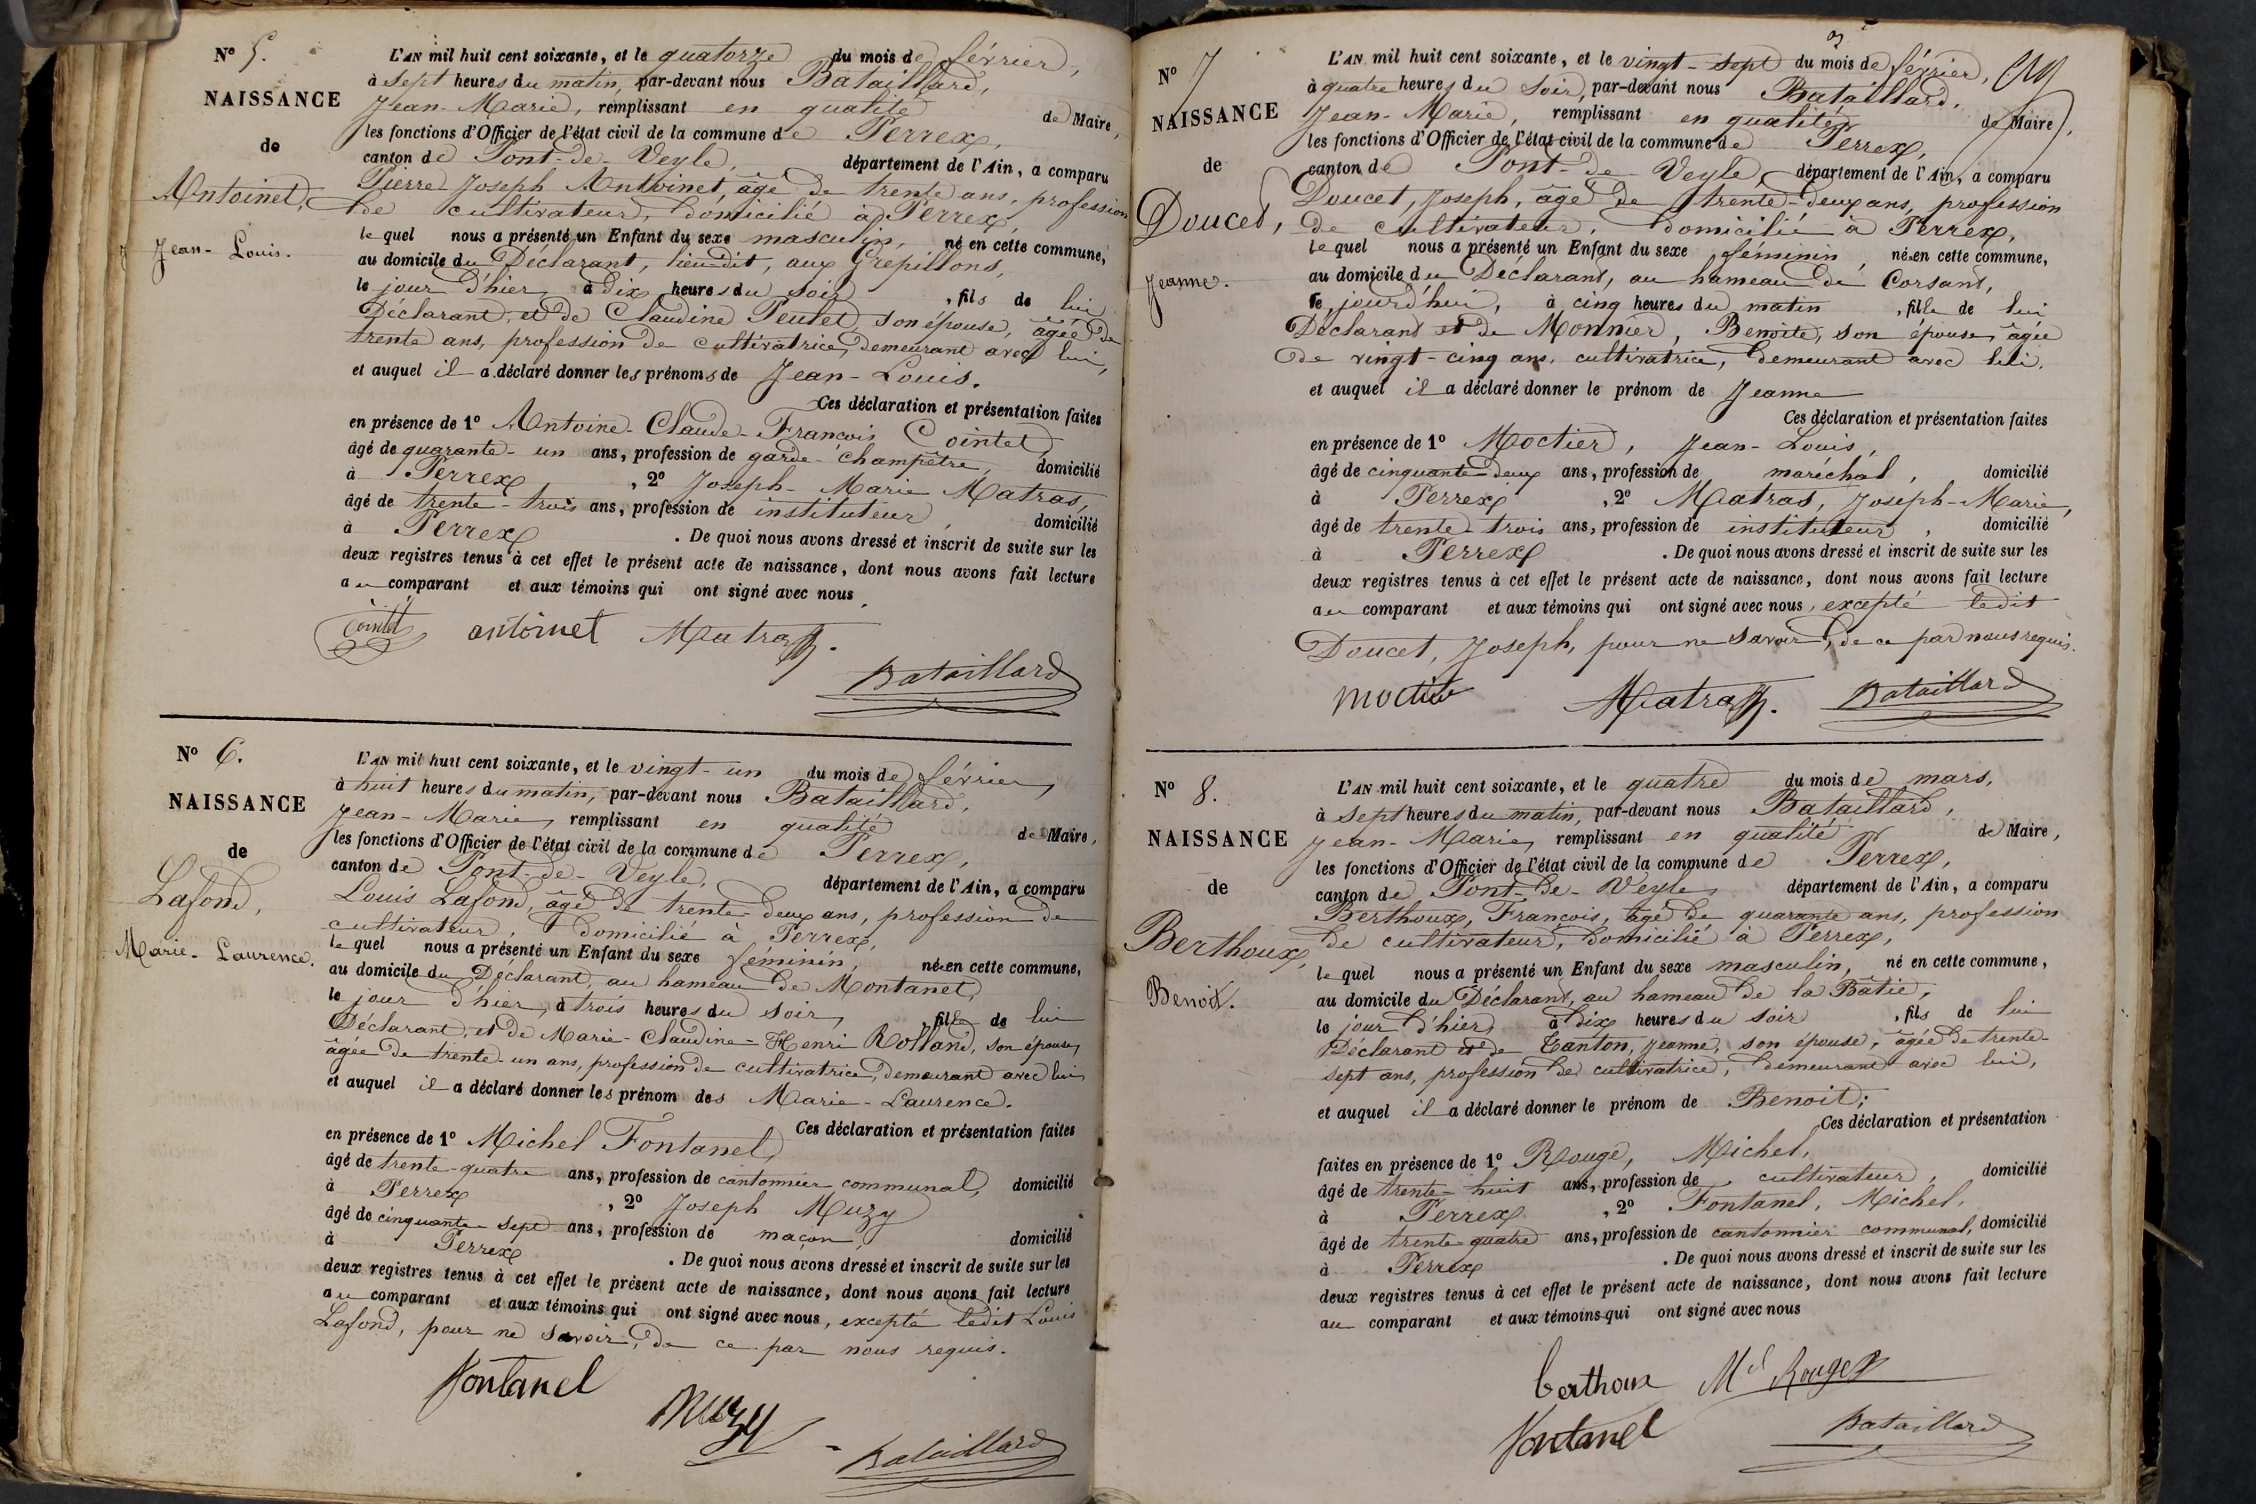 N° 5.
NAISSANCE
de
Antoinet,
Jean-Louis.
L'AN mil huit cent soixante, et le quatorze du mois de février,
à sept heures du matin, par-devant nous Bataillard,
Jean-Marie, remplissant en qualité de Maire,
les fonctions d'Officier de l'état civil de la commune de Perrex,
canton de Pont-de-Veyle, département de l'Ain, a comparu
Pierre Joseph Antoinet, âgé de trente ans, profession
de cultivateur, domicilié à Perrex,
le quel nous a présenté un Enfant du sexe masculin, né en cette commune,
au domicile du Déclarant, lieu dit, aux Grepillons,
le jour d'hier, à dix heures du soir, fils de lui
Déclarant, et de Claudine Peulet, son épouse, âgée de
trente ans, profession de cultivatrice, demeurant avec lui,
et auquel il a déclaré donner les prénoms de Jean-Louis.
Ces déclaration et présentation faites
en présence de 1° Antoine-Claude-François Cointet,
âgé de quarante-un ans, profession de garde-champêtre, domicilié
à Perrex, 2° Joseph-Marie Matras,
âgé de trente-trois ans, profession de instituteur, domicilié
à Perrex. De quoi nous avons dressé et inscrit de suite sur les
deux registres tenus à cet effet le présent acte de naissance, dont nous avons fait lecture
au comparant et aux témoins qui ont signé avec nous,
Cointet antoinet Matras.
Bataillard
N° 6.
NAISSANCE
de
Lafond,
Marie-Laurence.
L'AN mil huit cent soixante, et le vingt-un du mois de février,
à huit heures du matin, par-devant nous Bataillard,
Jean-Marie, remplissant en qualité de Maire,
les fonctions d'Officier de l'état civil de la commune de Perrex,
canton de Pont-de-Veyle, département de l'Ain, a comparu
Louis Lafond, âgé de trente-deux ans, profession de
cultivateur, domicilié à Perrex,
le quel nous a présenté un Enfant du sexe féminin, née en cette commune,
au domicile du Déclarant, au hameau de Montanet,
le jour d'hier, à trois heures du soir, fille de lui
Déclarant, et de Marie-Claudine-Henri Rolland, son épouse,
âgée de trente-un ans, profession de cultivatrice, demeurant avec lui,
et auquel il a déclaré donner les prénom des Marie-Laurence.
Ces déclaration et présentation faites
en présence de 1° Michel Fontanel,
âgé de trente-quatre ans, profession de cantonnier communal, domicilié
à Perrex, 2° Joseph Muzy
âgé de cinquante-sept ans, profession de maçon, domicilié
à Perrex. De quoi nous avons dressé et inscrit de suite sur les
deux registres tenus à cet effet le présent acte de naissance, dont nous avons fait lecture
au comparant et aux témoins qui ont signé avec nous, excepté ledit Louis
Lafond, pour ne savoir, de ce par nous requis.
Fontanel
Muzy
Bataillard
3
N° 7
NAISSANCE
de
Doucet,
Jeanne.
L'AN mil huit cent soixante, et le vingt-sept du mois de février,
à quatre heures du soir, par-devant nous Bataillard,
Jean-Marie, remplissant en qualité de Maire,
les fonctions d'Officier de l'état civil de la commune de Perrex,
canton de Pont-de Veyle, département de l'Ain, a comparu
Doucet, Joseph, âgé de trente-deux ans, profession
de cultivateur, domicilié à Perrex,
le quel nous a présenté un Enfant du sexe féminin, née en cette commune,
au domicile du Déclarant, au hameau de Corsant,
le jourd'hui, à cinq heures du matin, fille de lui
Déclarant et de Monnier, Benoite, son épouse, âgée
de vingt-cinq ans, cultivatrice, demeurant avec lui,
et auquel il a déclaré donner le prénom de Jeanne
Ces déclaration et présentation faites
en présence de 1° Moctier, Jean-Louis,
âgé de cinquante-deux ans, profession de maréchal, domicilié
à Perrex, 2° Matras, Joseph-Marie,
âgé de trente-trois ans, profession de instituteur, domicilié
à Perrex. De quoi nous avons dressé et inscrit de suite sur les
deux registres tenus à cet effet le présent acte de naissance, dont nous avons fait lecture
au comparant et aux témoins qui ont signé avec nous, excepté ledit
Doucet, Joseph, pour ne savoir, de ce par nous requis.
Moctier Matras. Bataillard
N° 8.
NAISSANCE
de
Berthoux,
Benoit.
L'AN mil huit cent soixante, et le quatre du mois de mars,
à sept heures du matin, par-devant nous Bataillard,
Jean-Marie, remplissant en qualité de Maire,
les fonctions d'Officier de l'état civil de la commune de Perrex,
canton de Pont-de-Veyle, département de l'Ain, a comparu
Berthoux, François, âgé de quarante ans, profession
de cultivateur, domicilié à Perrex,
le quel nous a présenté un Enfant du sexe masculin, né en cette commune,
au domicile du Déclarant, au hameau de la Bâtie,
le jour d'hier, à dix heures du soir, fils de lui
Déclarant et de Tanton, Jeanne, son épouse, âgée de trente-
sept ans, profession de cultivatrice, demeurant avec lui,
et auquel il a déclaré donner le prénom de Benoit;
Ces déclaration et présentation
faites en présence de 1° Rouge, Michel,
âgé de trente-huit ans, profession de cultivateur, domicilié
à Perrex, 2° Fontanel, Michel,
âgé de trente quatre ans, profession de cantonnier communal, domicilié
à Perrex. De quoi nous avons dressé et inscrit de suite sur les
deux registres tenus à cet effet le présent acte de naissance, dont nous avons fait lecture
au comparant et aux témoins qui ont signé avec nous
berthoux Mel Rouge
Fontanel Bataillard